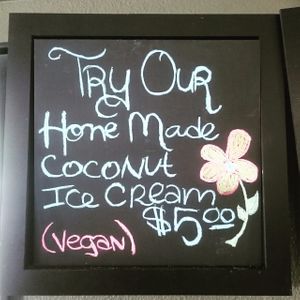 Try Our
Home Made
Coconut
Ice Cream
$5.00
(Vegan)